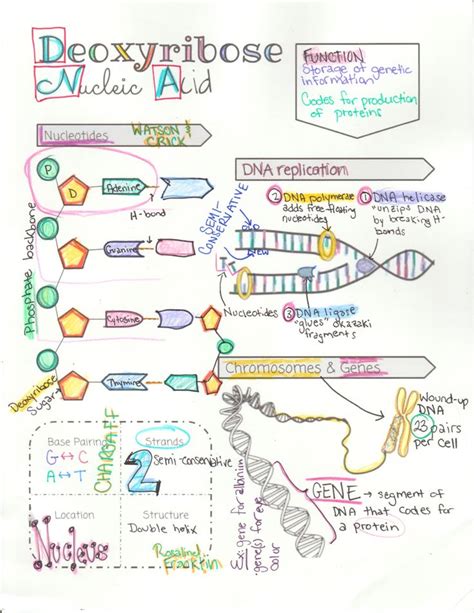 Deoxyribose
Nucleic Acid
FUNCTION
Storage of genetic
information
Codes for production
of proteins
Nucleotides
WATSON &
CRICK
P
D
Adenine
H-bond
Guanine
Cytosine
Thymine
Phosphate backbone
Deoxyribose
Sugar
DNA replication
SEMI-
CONSERVATIVE
② DNA polymerase
adds free floating
nucleotides
① DNA helicase
"unzips" DNA
by breaking H-
bonds
Nucleotides
③ DNA ligase
"glues" okazaki
fragments
Chromosomes & Genes
Wound-up
DNA
23 pairs
per cell
GENE → segment of
DNA that codes for
a protein
Ex: gene for albinism
gene(s) for eye
color
Base Pairing
G↔C
A↔T
CHARGAFF
Strands
2
Semi-conservative
Location
Nucleus
Structure
Double helix
Rosalind
Franklin